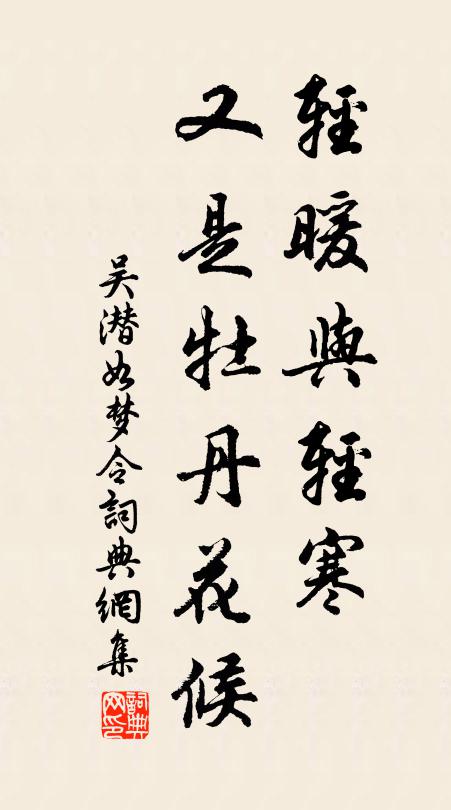 輕暖與輕寒
又是牡丹花候
吴潜如梦令詞典網集
詞典网印